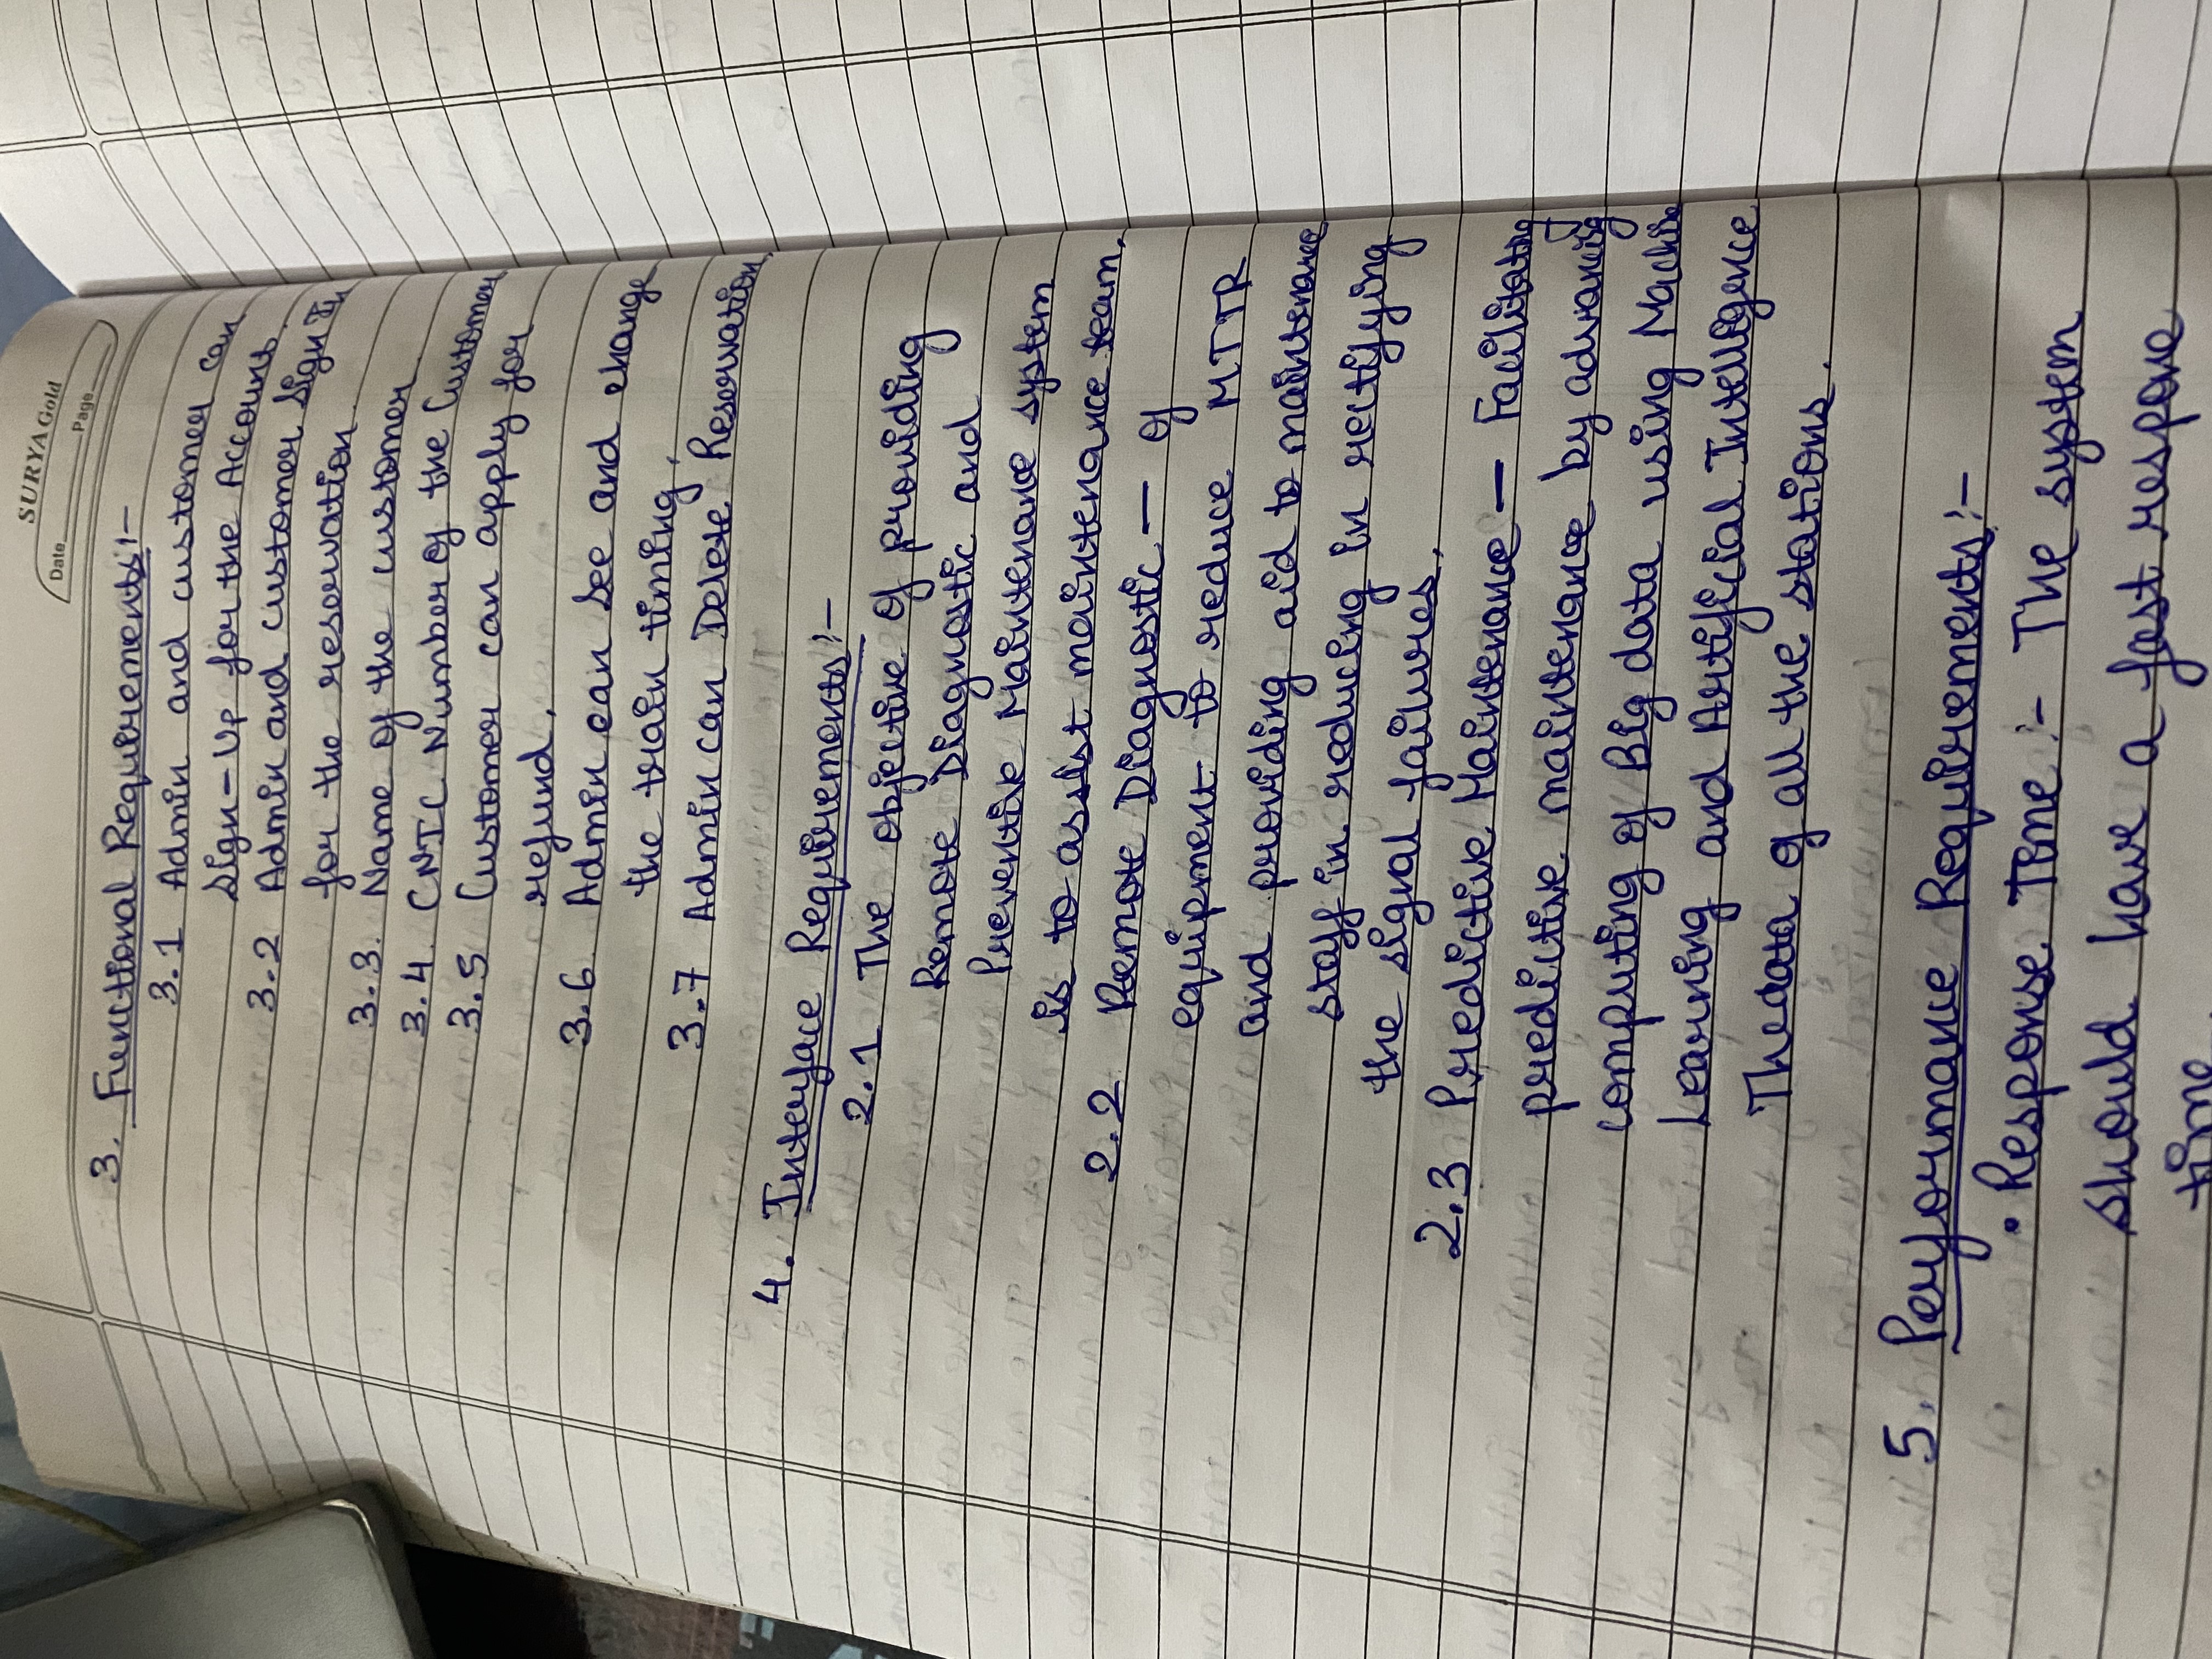 SURYA Gold
Date
Page
3. Functional Requirements:-
3.1 Admin and customer can
Sign-Up for the Account.
3.2 Admin and customer Sign In
for the reservation.
3.3. Name of the customer
3.4. CNIC Number of the Customer
3.5 Customer can apply for
refund.
3.6 Admin can see and change
the train timing.
3.7 Admin can Delete Reservation.
4. Interface Requirements:-
2.1 The objective of providing
Remote Diagnostic and
Preventive Maintenance system
is to assist maintenance team.
2.2 Remote Diagnostic — of
equipment to reduce MTTR
and providing aid to maintenance
staff in reducing in rectifying
the signal failures.
2.3 Predictive Maintenance — Facilitatng
predictive maintenance by advancing
computing of Big data using Machine
Learning and Artificial Intelligence
The data of all the stations.
5. Performance Requirements:-
• Response Time:- The system
should have a fast respone
time.